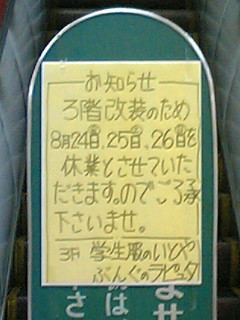 お知らせ
3階改装のため
8月24日、25日、26日を
休業とさせていた
だきます。のでご了承
下さいませ。
3F 学生服のいとや
ぶんぐのラピュタ